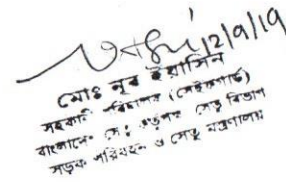 12/9/19
মোঃ নূর ইয়াসিন
সহকারী পরিচালক
বাংলাদেশ সেতু কর্তৃপক্ষ সেতু বিভাগ
সড়ক পরিবহন ও সেতু মন্ত্রণালয়